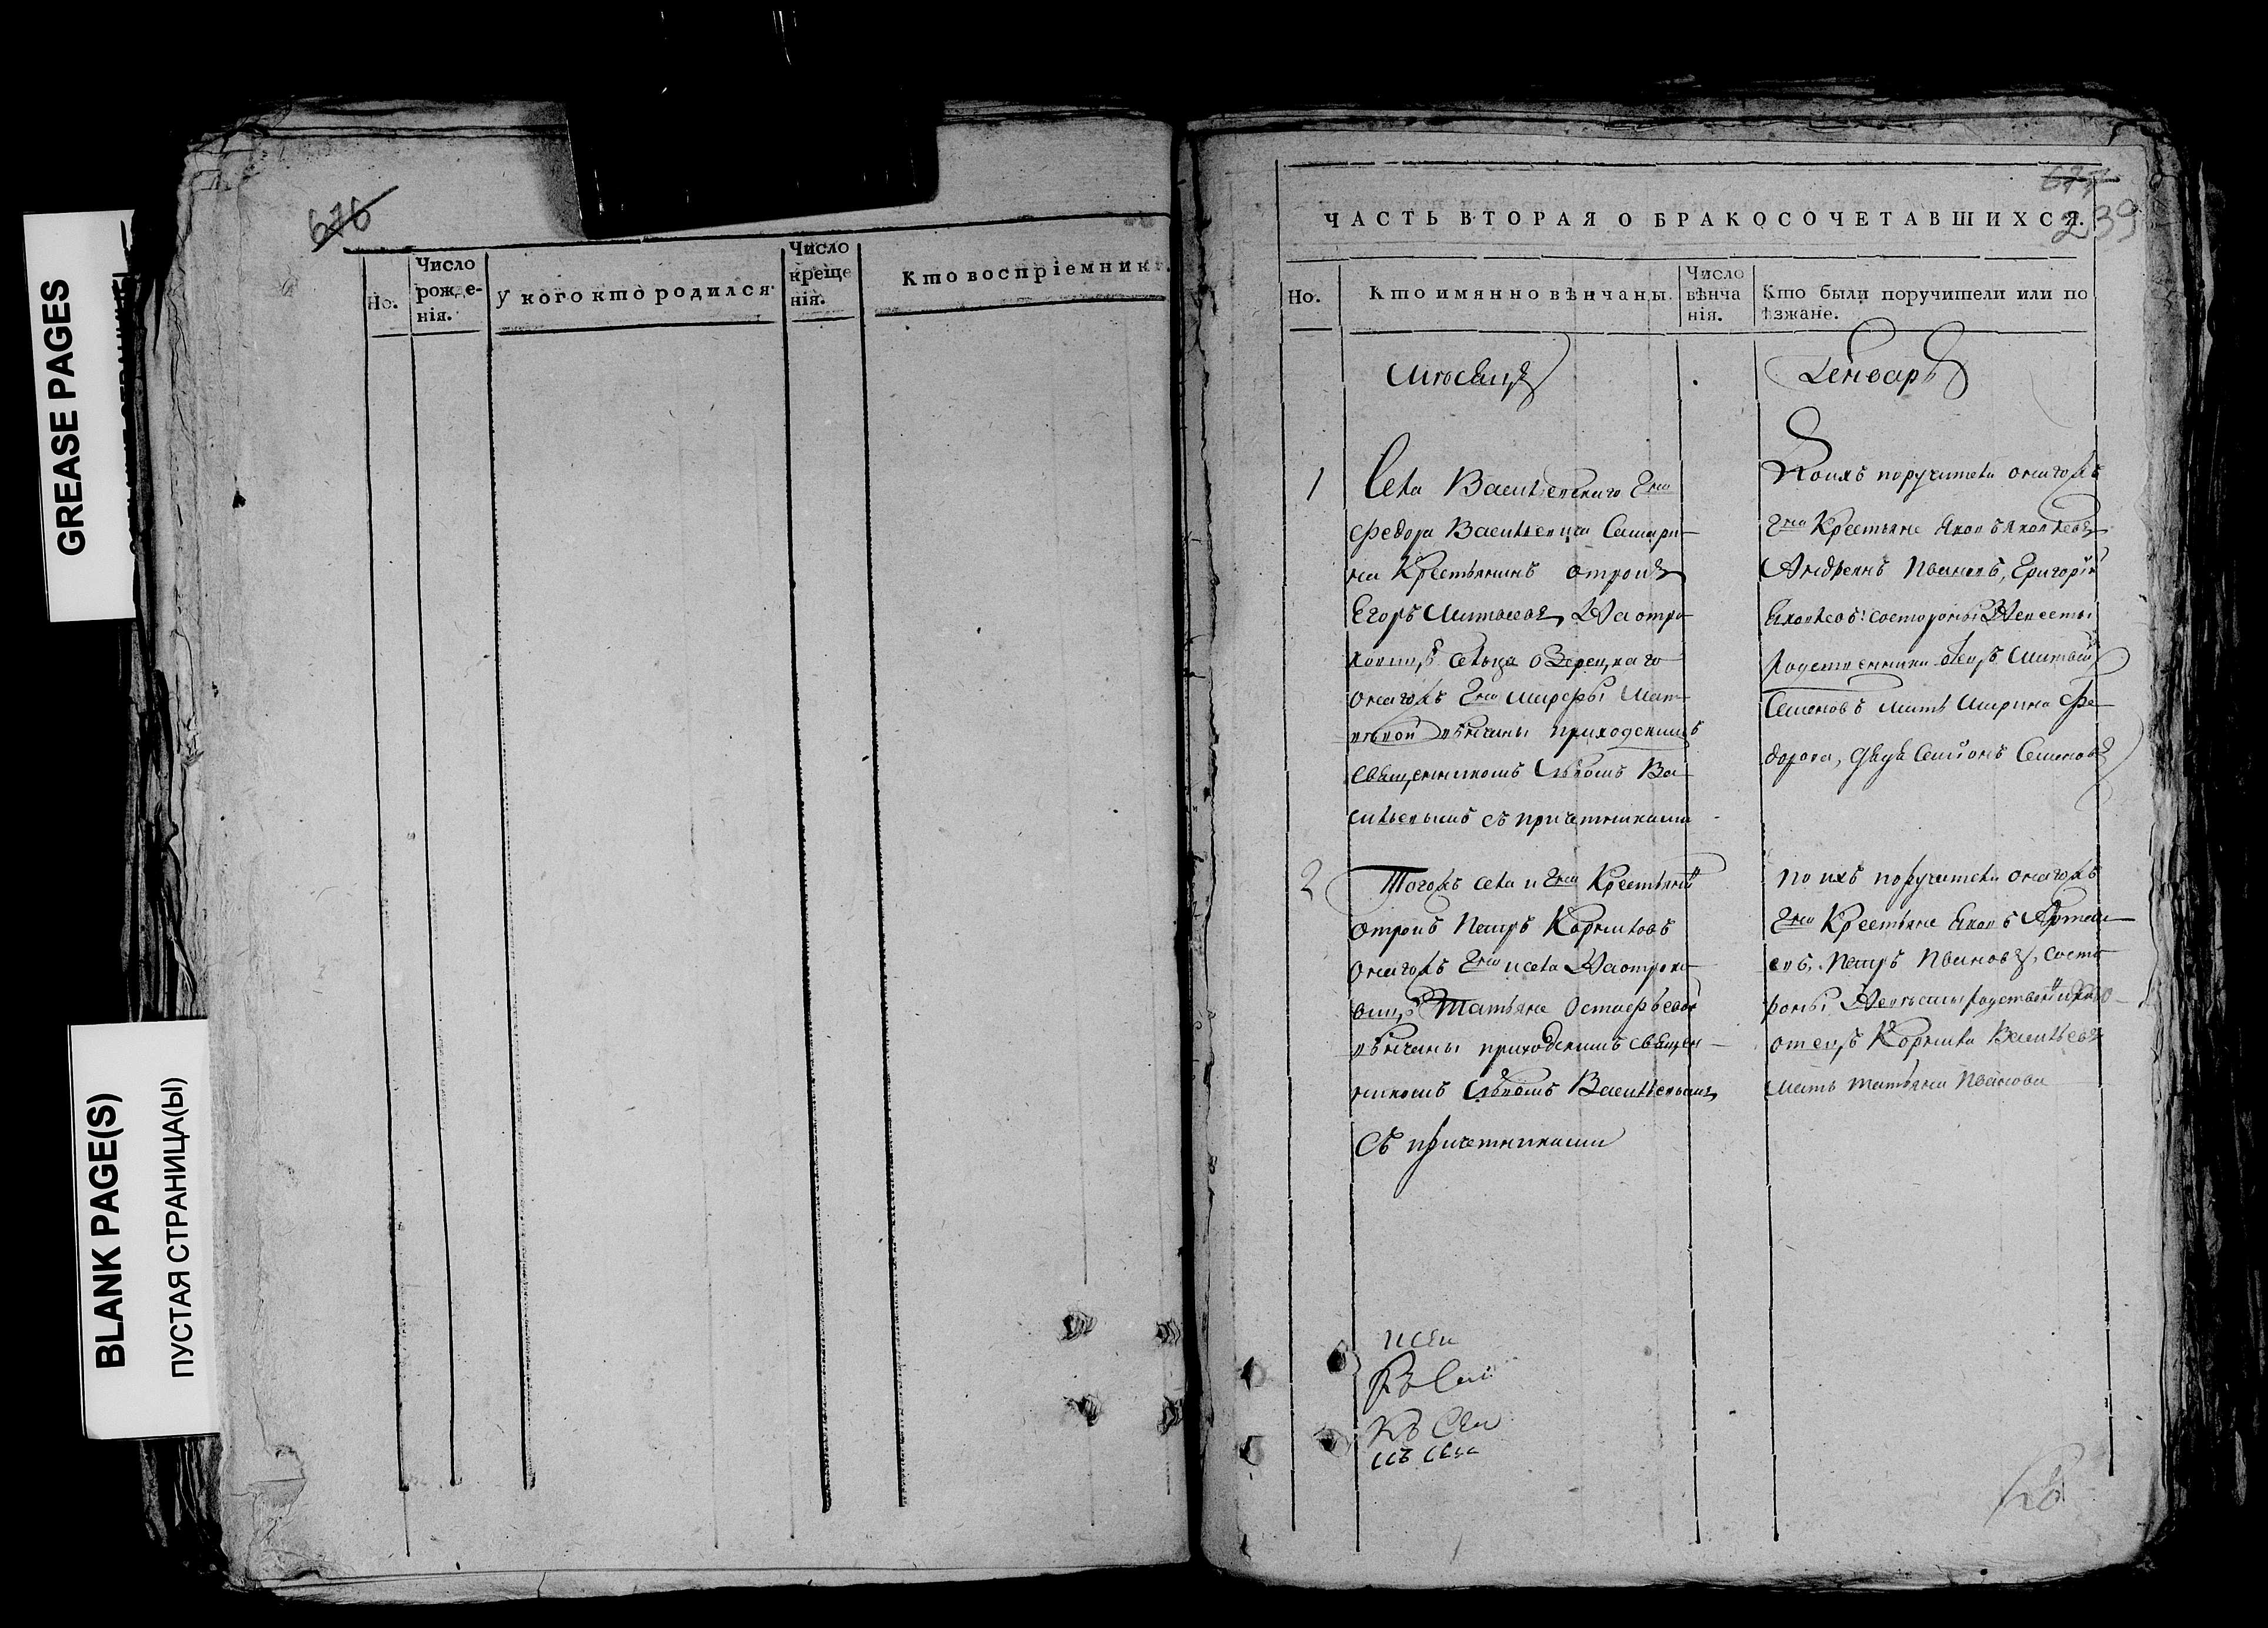 GREASE PAGES
BLANK PAGE(S)
ПУСТАЯ СТРАНИЦА(Ы)
676
Но.
Число рожде-нія.
У кого кто родился.
Число креще нія.
Кто воспріемники.
677
239
ЧАСТЬ ВТОРАЯ О БРАКОСОЧЕТАВШИХСЯ.
Но.
Кто имянно вѣнчаны.
Число вѣнча нія.
Кто были поручители или по ѣзжане.
Месяцъ
Генварь
1
Села Васильевскаго Гна
Федора Васильевича Самари-
на Крестьянинъ отрокъ
Егоръ Матвеевъ На отро-
ковицѣ сельца Озерецкаго
онагожъ Гна Марфы Мат-
вѣевой вѣнчаны приходскимъ
священникомъ Иаковомъ Ва-
сильевымъ съ причетниками
По ихъ поручители онагожъ
Гна Крестьяне Яковъ Яковлевъ
Андреянъ Ивановъ, Григорій
Яковлевъ: состороны Невесты
родственники отецъ Матвѣй
Семеновъ мать Марина Фе-
дорова, дядя Семіонъ Семеновъ
2
Тогожъ села и Гна Крестьянинъ
отрокъ Петръ Корниловъ
онагожъ Гна и села На отроко-
вицѣ Татьяне Остафьевой
вѣнчаны приходскимъ священ-
никомъ Иаковомъ Васильевымъ
съ причетниками
По ихъ поручители онагожъ
Гна Крестьяне Яковъ Артемь-
евъ, Петръ Ивановъ, состо-
роны Невѣсты родственники
отецъ Корнила Васильевъ
мать татьяна Иванова